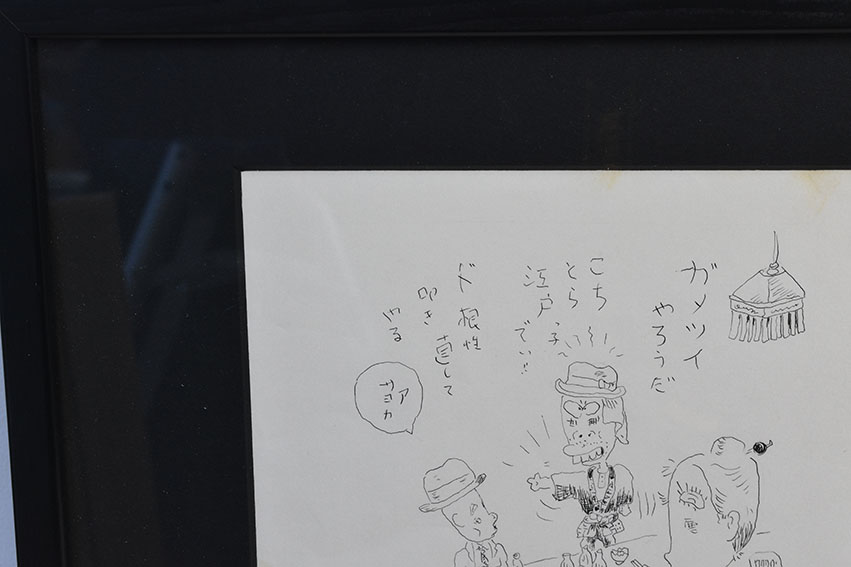 ガメツイ
やろうだ
こちとら
江戸っ子でい!!
ド根性
叩き直して
やる
ア
サヨカ